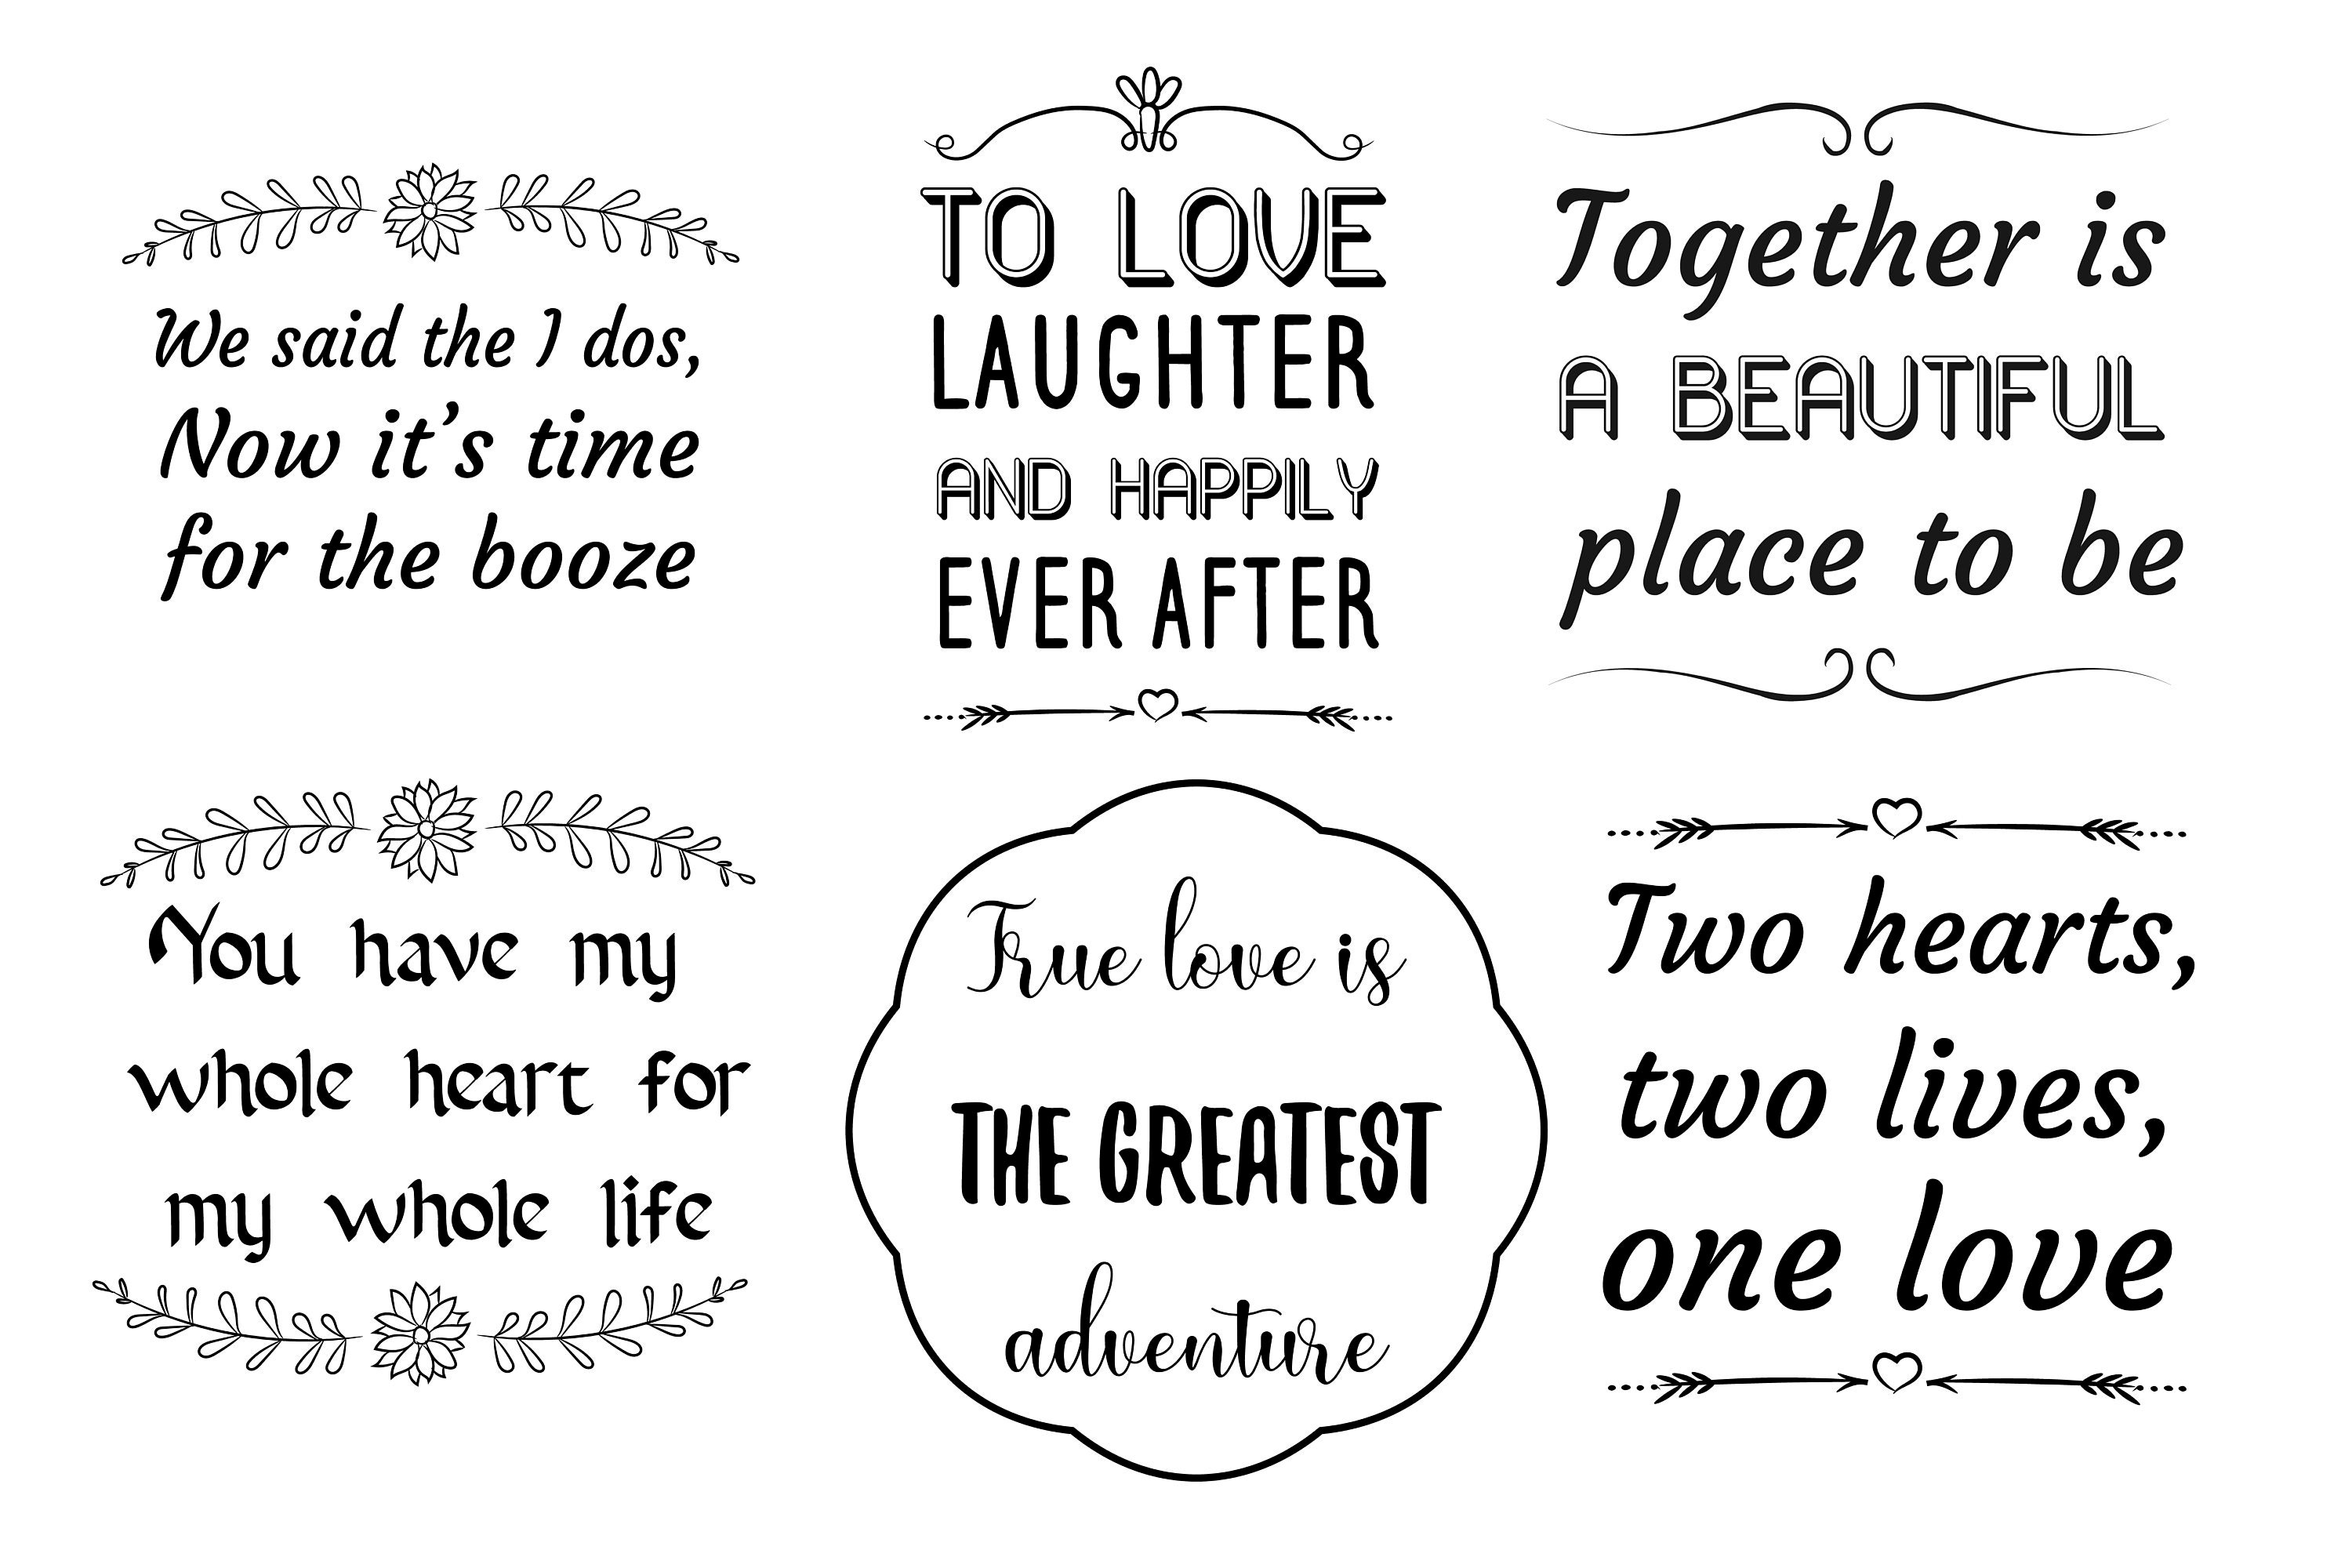 We said the I dos,
Now it's time
for the booze
TO LOVE
LAUGHTER
AND HAPPILY
EVER AFTER
Together is
A BEAUTIFUL
place to be
You have my
whole heart for
my whole life
True love is
THE GREATEST
adventure
Two hearts,
two lives,
one love